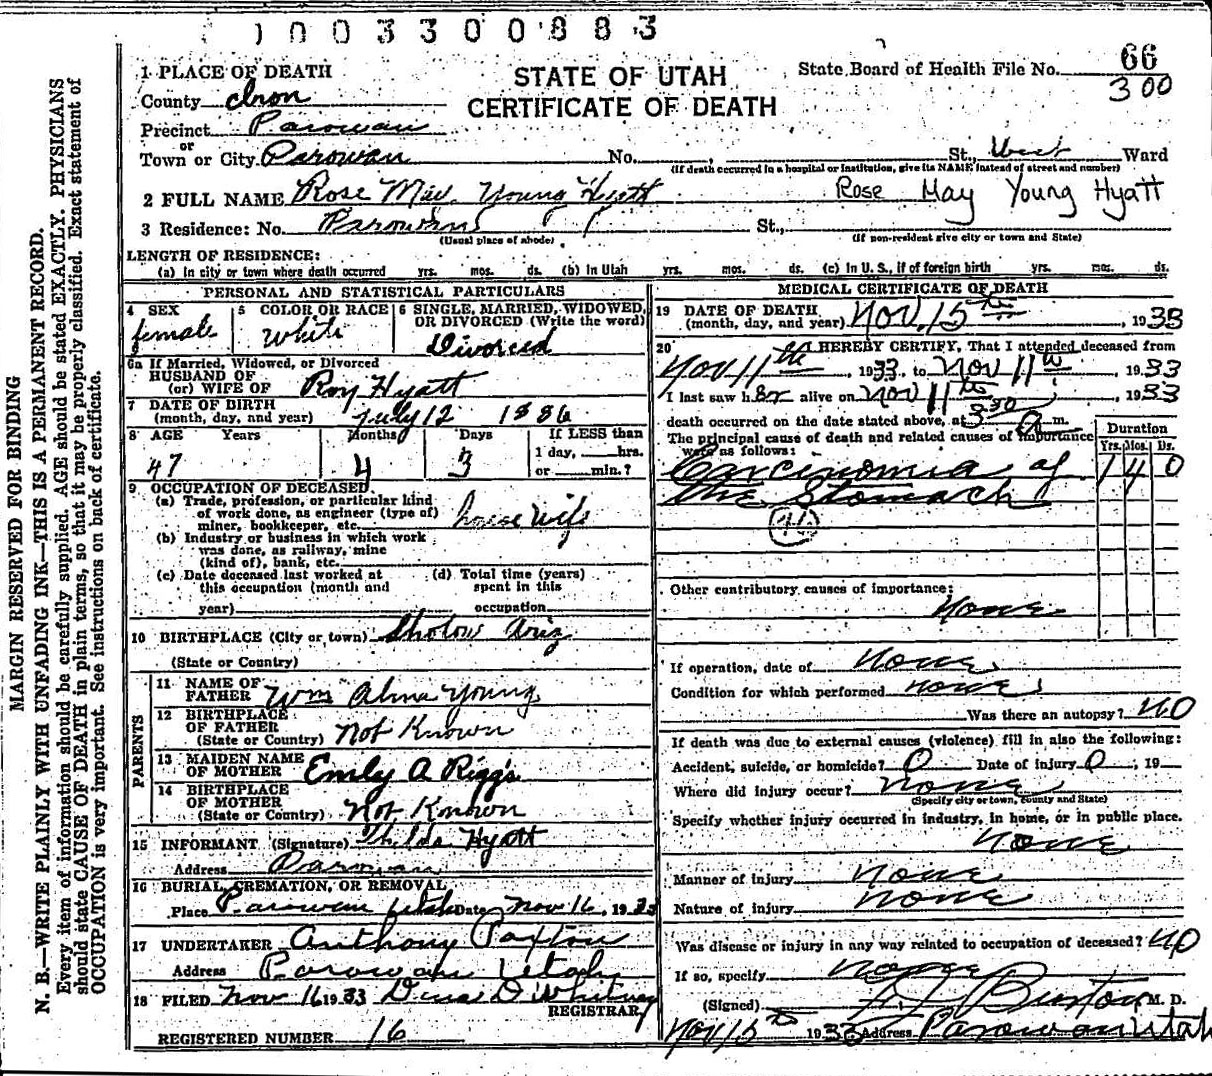 1003300883
66
300
MARGIN RESERVED FOR BINDING
N. B.—WRITE PLAINLY WITH UNFADING INK—THIS IS A PERMANENT RECORD.
Every item of information should be carefully supplied. AGE should be stated EXACTLY. PHYSICIANS
should state CAUSE OF DEATH in plain terms, so that it may be properly classified. Exact statement of
OCCUPATION is very important. See instructions on back of certificate.
STATE OF UTAH
CERTIFICATE OF DEATH
State Board of Health File No.
1 PLACE OF DEATH
County Iron
Precinct Parowan
or
Town or City Parowan No. St., West Ward
(If death occurred in a hospital or institution, give its NAME instead of street and number)
2 FULL NAME Rose May Young Hyatt Rose May Young Hyatt
3 Residence: No. Parowan St.,
(Usual place of abode) (If non-resident give city or town and State)
LENGTH OF RESIDENCE:
(a) In city or town where death occurred yrs. mos. ds. (b) In Utah yrs. mos. ds. (c) In U. S., if of foreign birth yrs. mos. ds.
PERSONAL AND STATISTICAL PARTICULARS
4 SEX
female
5 COLOR OR RACE
White
6 SINGLE, MARRIED, WIDOWED,
OR DIVORCED (Write the word)
Divorced
6a If Married, Widowed, or Divorced
HUSBAND OF
(or) WIFE OF Roy Hyatt
7 DATE OF BIRTH
(month, day, and year) July 12 1886
8 AGE Years Months Days If LESS than
1 day, hrs.
or min.?
47 4 3
9 OCCUPATION OF DECEASED
(a) Trade, profession, or particular kind
of work done, as engineer (type of)
miner, bookkeeper, etc. house wife
(b) Industry or business in which work
was done, as railway, mine
(kind of), bank, etc.
(c) Date deceased last worked at
this occupation (month and
year)
(d) Total time (years)
spent in this
occupation
10 BIRTHPLACE (City or town) Sholow Ariz
(State or Country)
PARENTS
11 NAME OF
FATHER Wm Alma Young
12 BIRTHPLACE
OF FATHER
(State or Country) Not Known
13 MAIDEN NAME
OF MOTHER Emily A Riggs
14 BIRTHPLACE
OF MOTHER
(State or Country) Not Known
15 INFORMANT (Signature) Thilda Hyatt
Address Parowan
16 BURIAL, CREMATION, OR REMOVAL
Place Parowan Utah Date Nov 16, 1933
17 UNDERTAKER Anthony Paxton
Address Parowan Utah
18 FILED Nov 16 1933 D Whitney
REGISTRAR
REGISTERED NUMBER 16
MEDICAL CERTIFICATE OF DEATH
19 DATE OF DEATH
(month, day, and year) Nov. 15th, 1933
20 I HEREBY CERTIFY, That I attended deceased from
Nov 11th, 1933, to Nov 11th, 1933
I last saw her alive on Nov 11th, 1933
death occurred on the date stated above, at 3 30 a m.
The principal cause of death and related causes of importance
were as follows:
Duration
Yrs. Mos. Ds.
Carcinomia of 1 4 0
the Stomach
46
Other contributory causes of importance:
None
If operation, date of None
Condition for which performed None
Was there an autopsy? NO
If death was due to external causes (violence) fill in also the following:
Accident, suicide, or homicide? O Date of injury O, 19
Where did injury occur? None
(Specify city or town, county and State)
Specify whether injury occurred in industry, in home, or in public place.
None
Manner of injury None
Nature of injury None
Was disease or injury in any way related to occupation of deceased? NO
If so, specify
(Signed) Burton M. D.
Nov 15th 1933 Address Parowan Utah